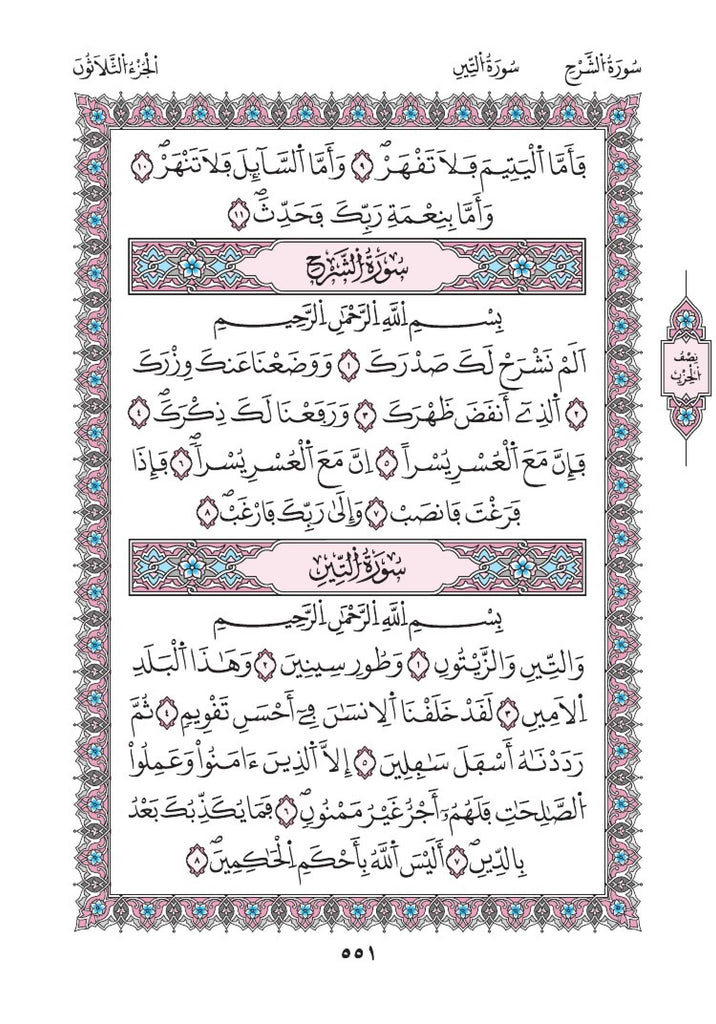 سُورَةُ الشَّرْحِ سُورَةُ التِّينِ الْجُزْءُ الثَّلَاثُونَ
فَأَمَّا اَ۬لْيَتِيمَ فَلَا تَقْهَرْۖ ٩ وَأَمَّا اَ۬لسَّآئِلَ فَلَا تَنْهَرْۖ ١٠
وَأَمَّا بِنِعْمَةِ رَبِّكَ فَحَدِّثْۖ ١١
سُورَةُ الشَّرْحِ
بِسْمِ اِ۬للَّهِ اِ۬لرَّحْمَٰنِ اِ۬لرَّحِيمِ
اَلَمْ نَشْرَحْ لَكَ صَدْرَكَ ١ وَوَضَعْنَا عَنكَ وِزْرَكَ
٢ اَ۬لذِےٓ أَنقَضَ ظَهْرَكَ ٣ وَرَفَعْنَا لَكَ ذِكْرَكَۖ ٤
فَإِنَّ مَعَ اَ۬لْعُسْرِ يُسْراً ٥ اِنَّ مَعَ اَ۬لْعُسْرِ يُسْراًۖ ٦ فَإِذَا
فَرَغْتَ فَانصَبْ ٧ وَإِلَىٰ رَبِّكَ فَارْغَبْۖ ٨
سُورَةُ التِّينِ
بِسْمِ اِ۬للَّهِ اِ۬لرَّحْمَٰنِ اِ۬لرَّحِيمِ
وَالتِّينِ وَالزَّيْتُونِ ١ وَطُورِ سِينِينَ ٢ وَهَٰذَا اَ۬لْبَلَدِ
اِ۬لَامِينِ ٣ لَقَدْ خَلَقْنَا اَ۬لِانسَٰنَ فِےٓ أَحْسَنِ تَقْوِيمٖ ٤ ثُمَّ
رَدَدْنَٰهُ أَسْفَلَ سَٰفِلِينَ ٥ إِلَّا اَ۬لذِينَ ءَامَنُواْ وَعَمِلُواْ
اُ۬لصَّٰلِحَٰتِ فَلَهُمُۥٓ أَجْرٌ غَيْرُ مَمْنُونٖۖ ٦ فَمَا يُكَذِّبُكَ بَعْدُ
بِالدِّينِۖ ٧ أَلَيْسَ اَ۬للَّهُ بِأَحْكَمِ اِ۬لْحَٰكِمِينَۖ ٨
نِصْفُ
الْحِزْبِ
٥٥١